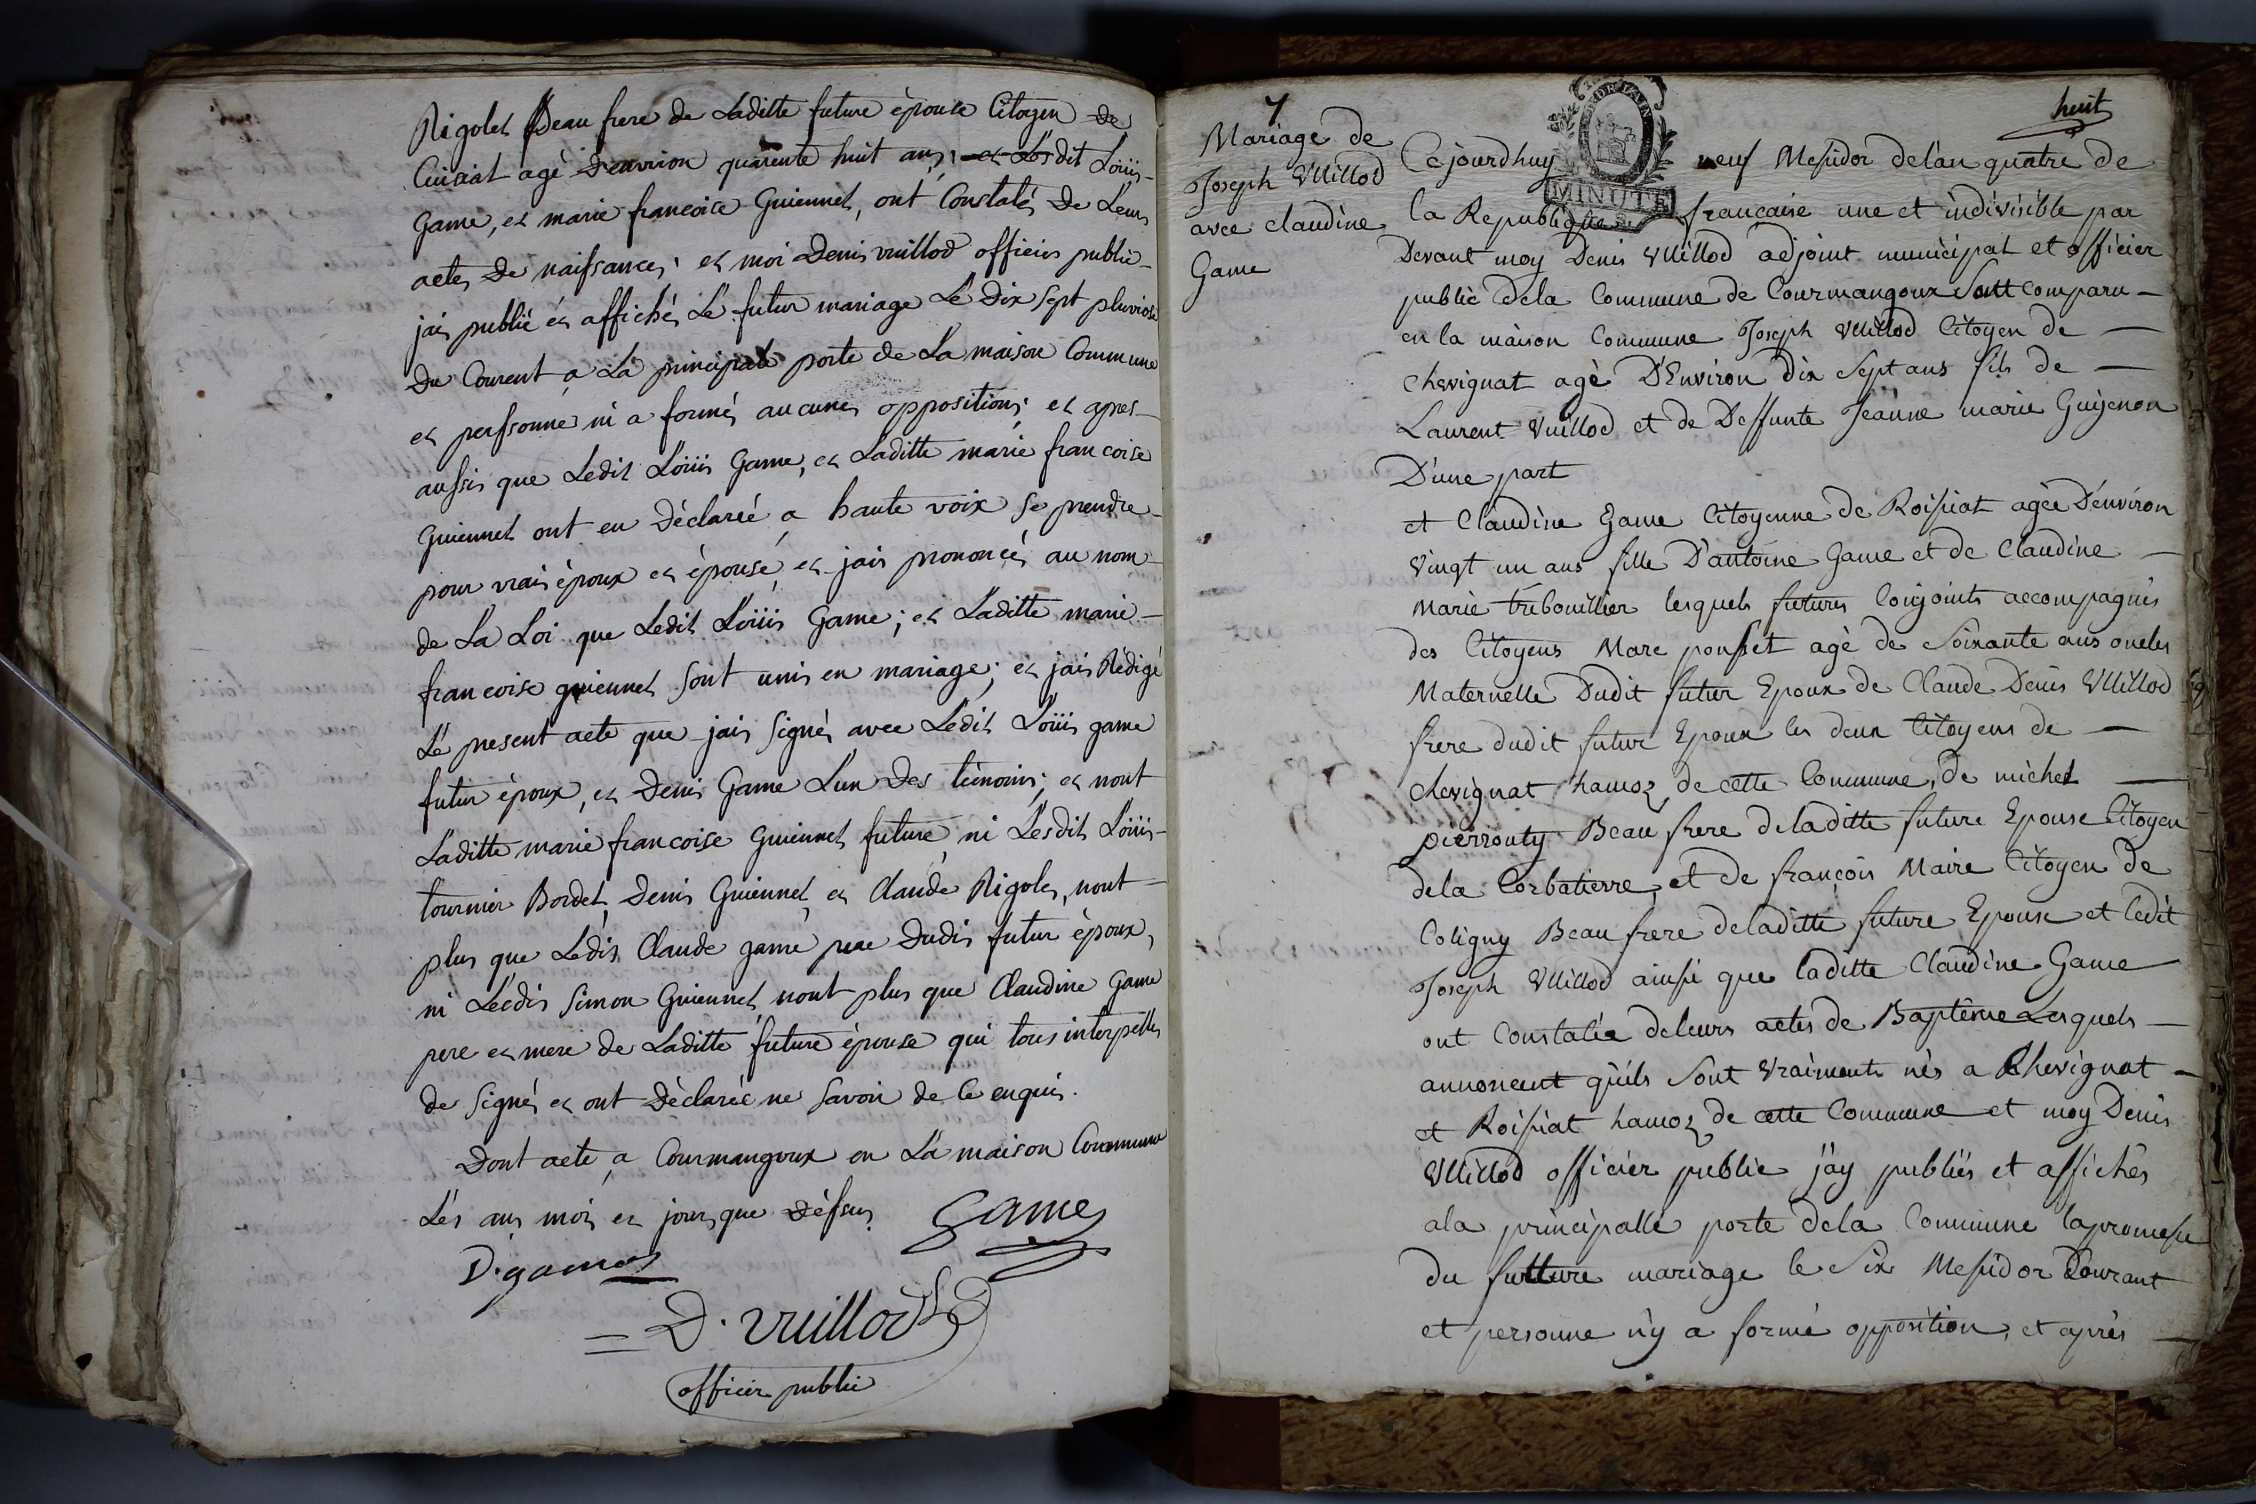 Rigolet Beau frere de Laditte future èpouse Citoyen de
Cuisiat agé d'environ quarente huit ans, et Lesdit Loüis
Game, et marie francoise Guiennet, ont Constatés de Leurs
actes de naissances; et moi Denis vuillod officier public
jais publié et affichés Lé futur mariage Lé dix sept pluviose
du Courent a La principale porte de La maison Commune
et perssonne ni a formés aucunes oppositions; et apres
aussis que Ledit Loüis Game, et Laditte marie francoise
Guiennet ont eu dèclarée a haute voix se prendre
pour vrais èpoux et èpousé, et jais prononcés au nom
de La Loi que Ledit Loüis Game; et Laditte marie
francoise guiennet sont unis en mariage; et jais Rédigé
Lé present acte que jais signés avec Ledit Loüis game
futur èpoux, et Denis Game L'un des tèmoins; et nont
Laditte marie francoise Guiennet future, ni Lesdit Loüis
tournier Bordet, Denis Guiennet, et Claude Rigolet, nont
plus que Lédit Claude game pere dudit futur èpoux,
ni Lesdit Simon Guiennet, nont plus que Claudine Game
pere et mere de Laditte future èpouse qui tous interpellés
de signés et ont dèclarée ne savoir de ce enquis.
Dont acte, a Courmangoux en La maison Commune
Lés ans mois et jours que dèssus.
Game
D. game
D. vuillod
officier public
huit
7
Mariage de
Joseph Vuillod
avec claudine
Game
MINUTE
Cejourdhuy neuf Messidor de l'an quatre de
la Republique francaise une et indivisible par
Devant moy Denis Vuillod adjoint municipal et officier
public dela Commune de Courmangoux Sont comparu
en la maison Commune Joseph Vuillod Citoyen de
chevignat agé D'Environ dix Sept ans fils de
Laurent Vuillod et de Deffunte Jeanne marie Guyenon
D'une part
et Claudine Game Citoyenne de Roisiat agée D'environ
vingt un ans fille D'antoine Game et de Claudine
Marie trebouillier lesquels futures Conjoints accompagnés
des Citoyens Marc poncet agé de Soixante ans oncles
Maternelle Dudit futur Epoux de Claude Denis Vuillod
frere dudit futur Epoux les deux Citoyens de
chevignat hamoz de cette Commune, de michel
pierrouty Beau frere deladitte future Epouse Citoyen
dela Corbatierre, et de françois Maire Citoyen de
Coligny Beau frere deladitte future Epouse et ledit
Joseph Vuillod ainsi que laditte Claudine Game
ont Constatée deleurs actes de Baptême Lesquels
annoncent qu'ils Sont vraiments nés a Chevignat
et Roisiat hamoz de cette Commune et moy Denis
Vuillod officier public j'ay publiés et affichés
ala principalle porte dela Commune lapromesse
du future mariage le Six Messidor Courant
et personne n'y a formé opposition, et après